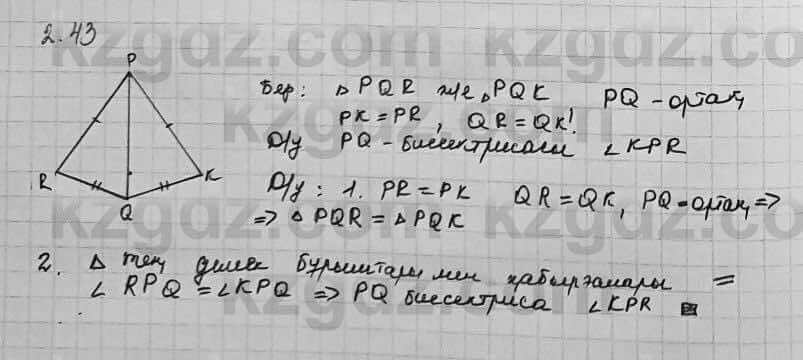 2.43
P
R
K
Q
Бер: △PQR же △PQK PQ - ортақ
PK = PR, QR = QK!
D/у PQ - биссектрисасы ∠KPR
D/у: 1. PR = PK QR = QK, PQ - ортақ =>
=> △PQR = △PQK
2. △ тең демек бұрыштары мен қабырғалары =
∠RPQ = ∠KPQ => PQ биссектриса ∠KPR
kzgdz.com